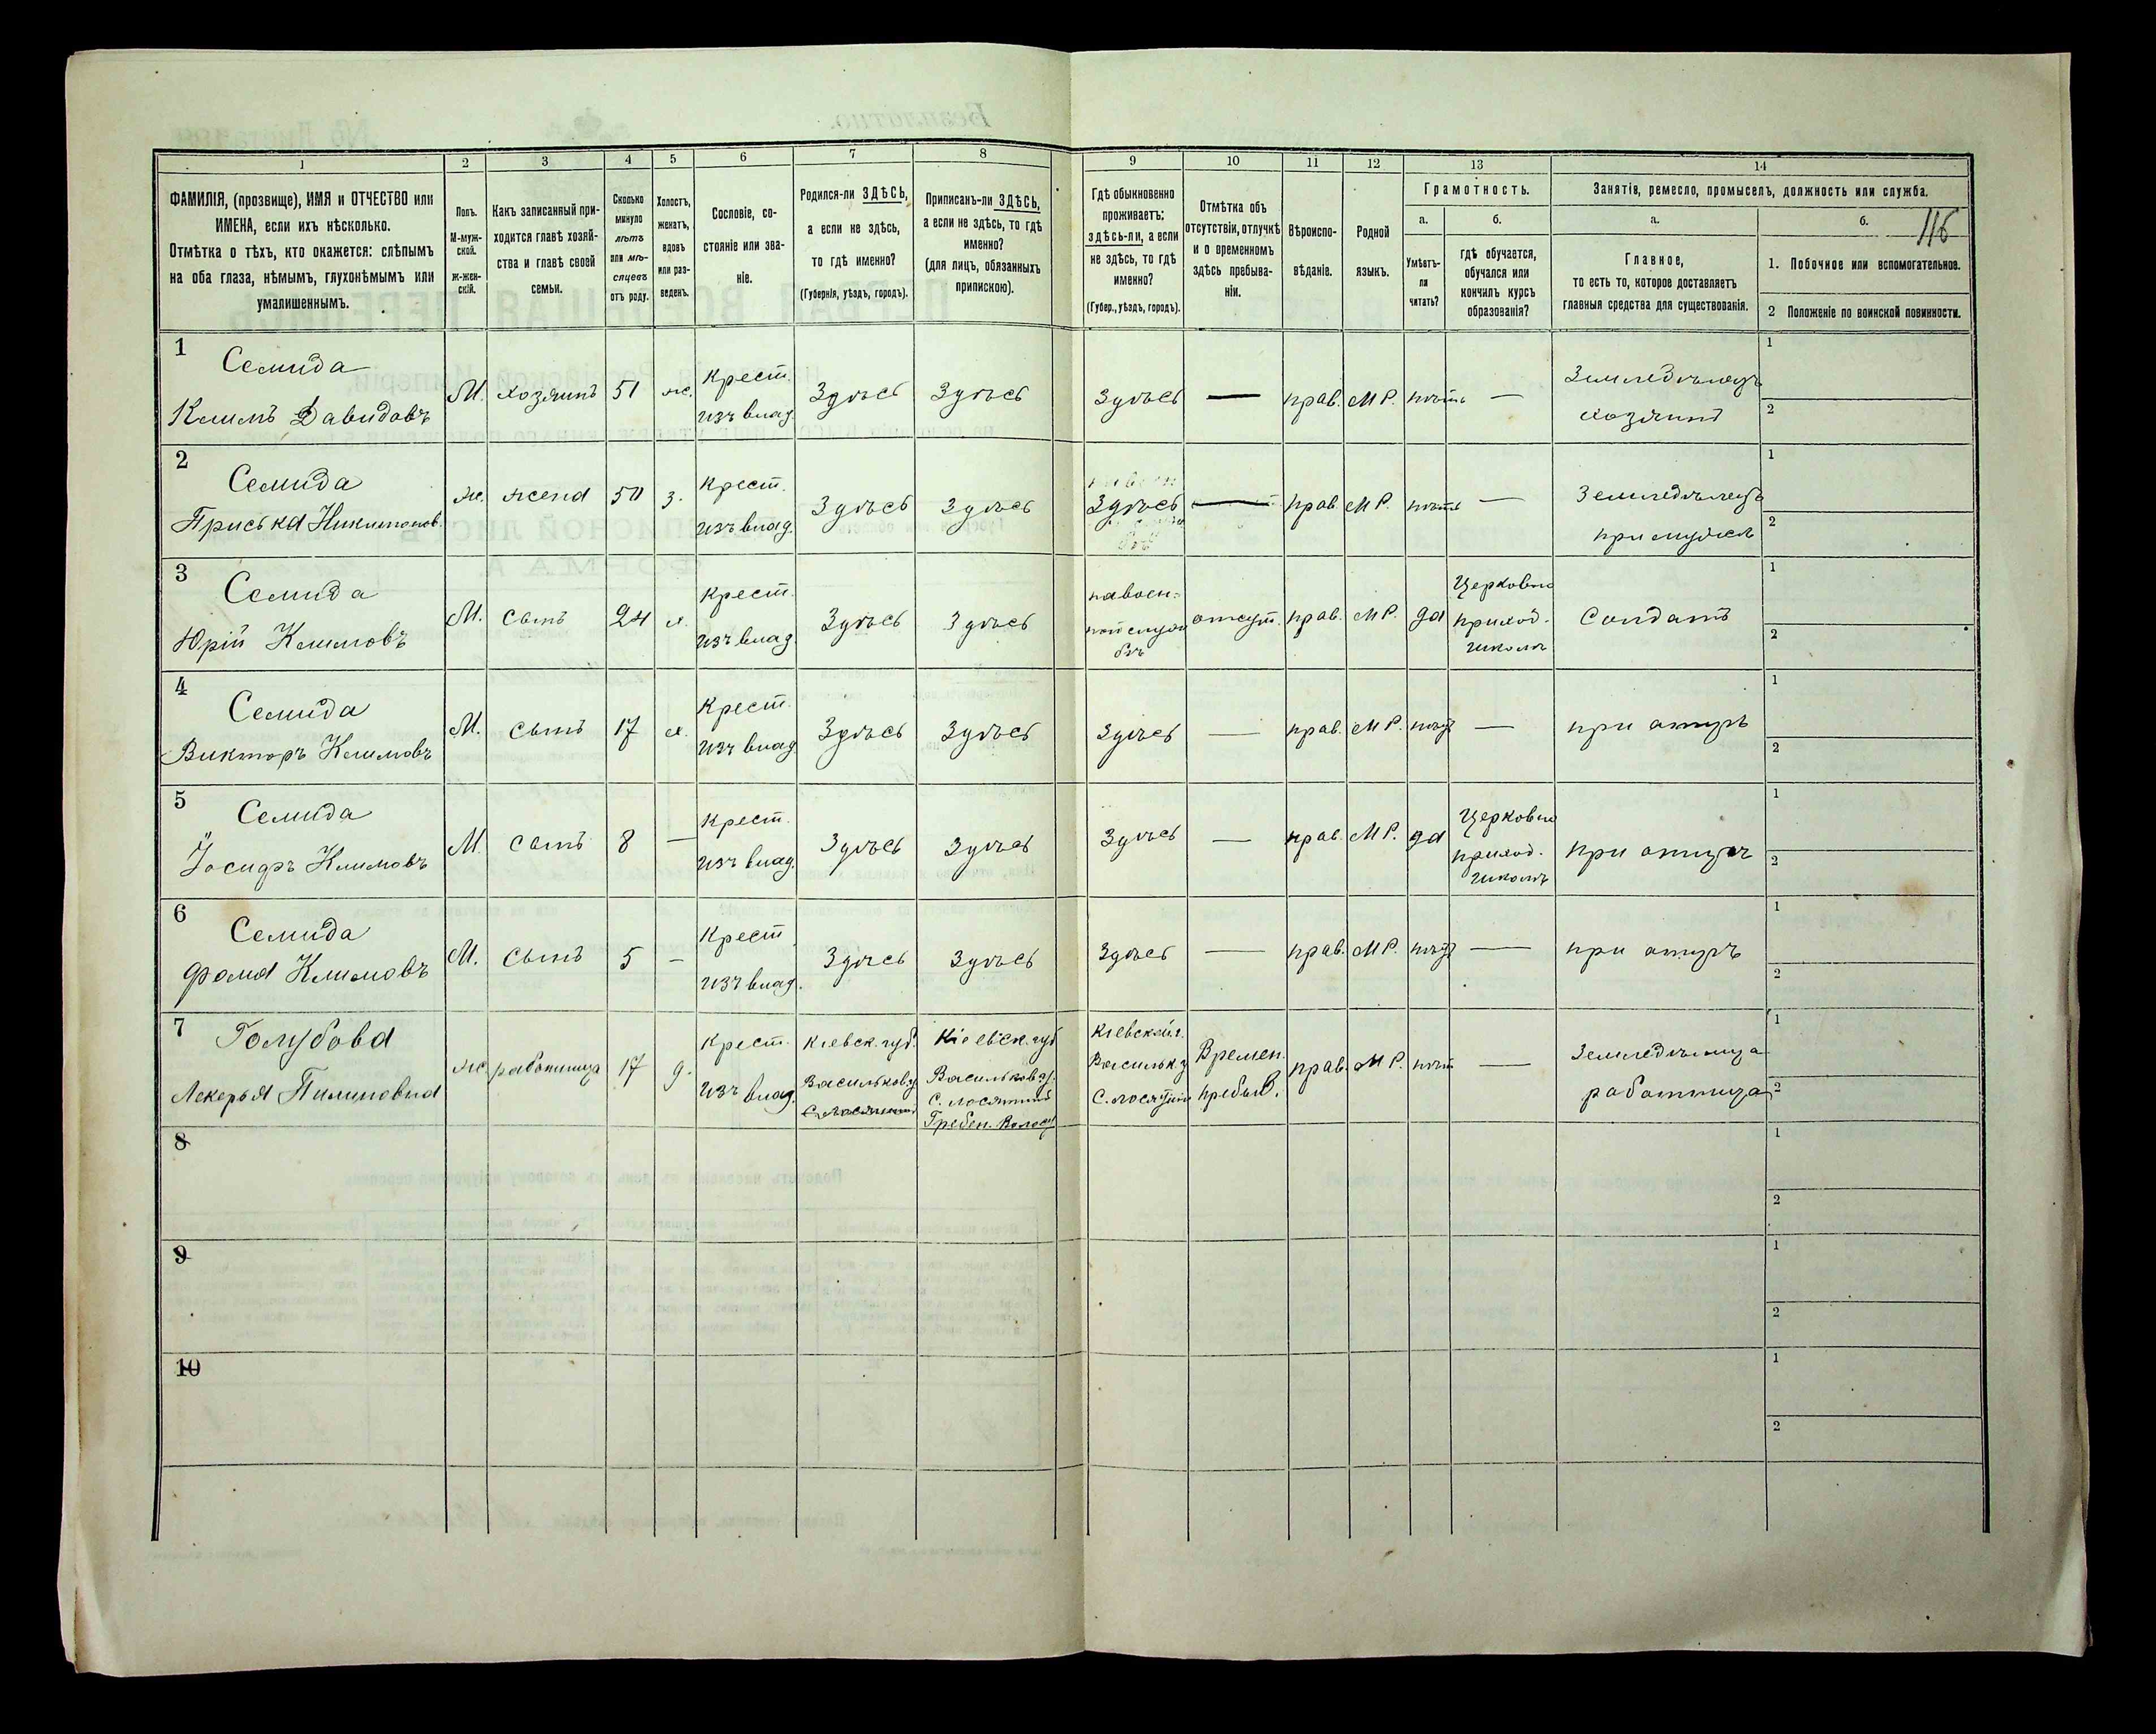 116
1 2 3 4 5 6 7 8 9 10 11 12 13 14
ФАМИЛІЯ, (прозвище), ИМЯ и ОТЧЕСТВО или
ИМЕНА, если ихъ нѣсколько.
Отмѣтка о тѣхъ, кто окажется: слѣпымъ
на оба глаза, нѣмымъ, глухонѣмымъ или
умалишеннымъ.
Полъ.
М-муж-
ской.
ж-жен-
скій.
Какъ записанный при-
ходится главѣ хозяй-
ства и главѣ своей
семьи.
Сколько
минуло
лѣтъ
или мѣ-
сяцевъ
отъ роду.
Холостъ,
женатъ,
вдовъ
или раз-
веденъ.
Сословіе, со-
стояніе или зва-
ніе.
Родился-ли ЗДѢСЬ,
а если не здѣсь,
то гдѣ именно?
(Губернія, уѣздъ, городъ).
Приписанъ-ли ЗДѢСЬ,
а если не здѣсь, то гдѣ
именно?
(для лицъ, обязанныхъ
припискою).
Гдѣ обыкновенно
проживаетъ:
здѣсь-ли, а если
не здѣсь, то гдѣ
именно?
(Губер., уѣздъ, городъ).
Отмѣтка объ
отсутствіи, отлучкѣ
и о временномъ
здѣсь пребыва-
ніи.
Вѣроиспо-
вѣданіе.
Родной
языкъ.
Грамотность.
а.
Умѣетъ-
ли
читать?
б.
гдѣ обучается,
обучался или
кончилъ курсъ
образованія?
Занятія, ремесло, промыселъ, должность или служба.
а.
Главное,
то есть то, которое доставляетъ
главныя средства для существованія.
б.
1. Побочное или вспомогательное.
2 Положеніе по воинской повинности.
1
Семида
Климъ Давидовъ
М. хозяинъ 51 ж.
Крест.
изъ влад.
Здѣсь Здѣсь Здѣсь — прав. М Р. нѣтъ —
Земледѣлецъ
хозяинъ
1
2
2
Семида
Приська
ж. жена 50 з.
Крест.
изъ влад.
Здѣсь Здѣсь Здѣсь — прав. М Р. нѣтъ —
при мужѣ
1
2
3
Семида
Юрій Климовъ
М. сынъ 24 х.
Крест.
изъ влад.
Здѣсь Здѣсь
на воен-
ной служ
бѣ
отсут. прав. М Р. да
Церковно
приход.
школѣ
Солдатъ
1
2
4
Семида
Викторъ Климовъ
М. сынъ 17 х.
Крест.
изъ влад.
Здѣсь Здѣсь Здѣсь — прав. М Р. нѣтъ — при отцѣ
1
2
5
Семида
Іосифъ Климовъ
М. сынъ 8 —
Крест.
изъ влад.
Здѣсь Здѣсь Здѣсь — прав. М Р. да
Церковно
приход.
школѣ
при отцѣ
1
2
6
Семида
Фома Климовъ
М. сынъ 5 —
Крест
изъ влад.
Здѣсь Здѣсь Здѣсь — прав. М Р. нѣтъ — при отцѣ
1
2
7
Голубова
Лекерья Пилиповна
ж. работница 17 д.
Крест.
изъ влад.
Кіевск. губ.
Васильков. у.
Кіевск. губ
Васильков у.
Гребен. Волос.
Кіевской г.
Васильк. у
Времен.
пребыв.
прав. М Р. нѣтъ —
работница
1
2
8
1
2
9
1
2
10
1
2